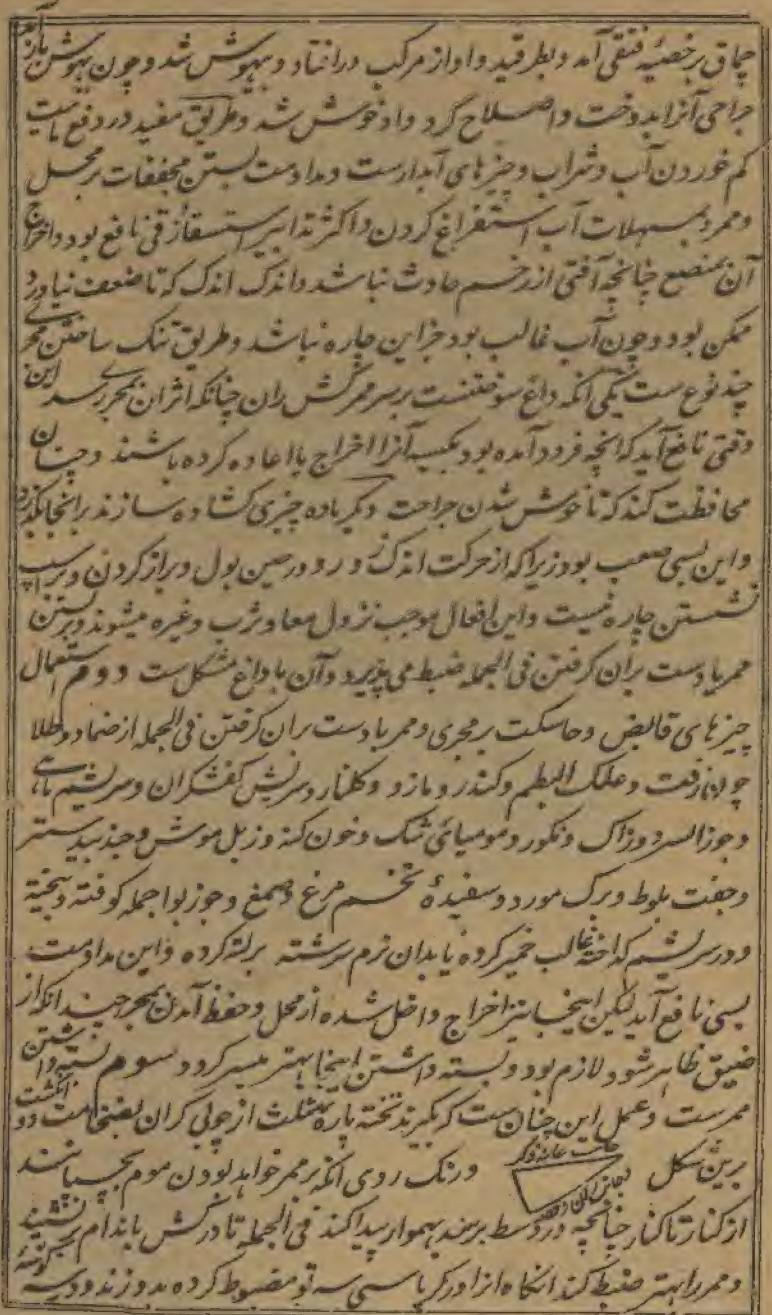 چماق برخصیه فتقی آمد و بطرقید و او از مرکب در افتاد و بیهوش شد و چون بهوش باز آمد
جراحی آنرا بدوخت و اصلاح کرد و او خوش شد و طریق مفید در دفع مائیت
کم خوردن آب و شراب و چیزهای آبدارست و مداومت بستن مجففات بر محل
و ممر و بمسهلات آب استفراغ کردن و اکثر تدابیر استسقاء زقی نافع بود و اخراج
آن بمبضع چنانچه آفتی از زخم حادث نباشد و اندک اندک که تا ضعف نیاورد
ممکن بود و چون آب غالب بود جز این چاره نباشد و طریق تنک ساختن مجری
چند نوع ست یکی آنکه داغ سوختنست بر سر ممر کش ران چنانکه اثر آن بمجری رسد این
وقتی نافع آید که آنچه فرود آمده بود بکیسه آنرا اخراج یا اعاده کرده باشند و چنان
محافظت کند که تا خوش شدن جراحت دیگر باده چیزی کشاده سازند بر انجا نگذرد
و این بسی صعب بود زیرا که از حرکت اندک و رو در حین بول و براز کردن و بر اسپ
نشستن چاره نیست و این افعال موجب نزول معا و ثرب و غیره میشوند و بر بستن
ممر یا دست بران گرفتن فی الجمله ضبط می پذیرد و آن با داغ مشکل ست دوم استعمال
چیزهای قابض و حاسکت بر مجری و ممر یا دست بران گرفتن فی الجمله از ضماد و طلا
چون زفت و علک البطم و کندر و مازو و گلنار و سریش کفشگران و سریشم ماهی
و جوز السرو و زاک و نکور و مومیائی شک و خون کنه و زبل موش و جندبیدستر
و جفت بلوط و برک مورد و سفیده تخم مرغ و صمغ و جوز بوا جمله کوفته و بیخته
و در سریشم گداخته غالب خمیر کرده یا بدان نرم سرشته بر لته کرده و این مداومت
بسی نافع آید لیکن اینجا نیز اخراج داخل شده از محل و حفظ آمدن بمجری چندانکه از
ضیق ظاهر شود لازم بود و بسته داشتن اینجا بهتر میسر گردد سوم بسته داشتن
ممرست و عمل این چنان ست که بگیرند تخته پاره مثلث از چوبی گران بضخامت دو انگشت
برین شکل جانب عانه و ذکر و رنک روی آنکه بر ممر خواهد بودن موم بچسپانند
از کنار تا کنار چنانچه در وسط برسند هموار پیدا کند فی الجمله تا در کش باندام نشیند
و ممر را بهتر ضبط کند انگاه آنرا در کرباسی سه تو مضبوط کرده بدوزند و دو سه گوشه